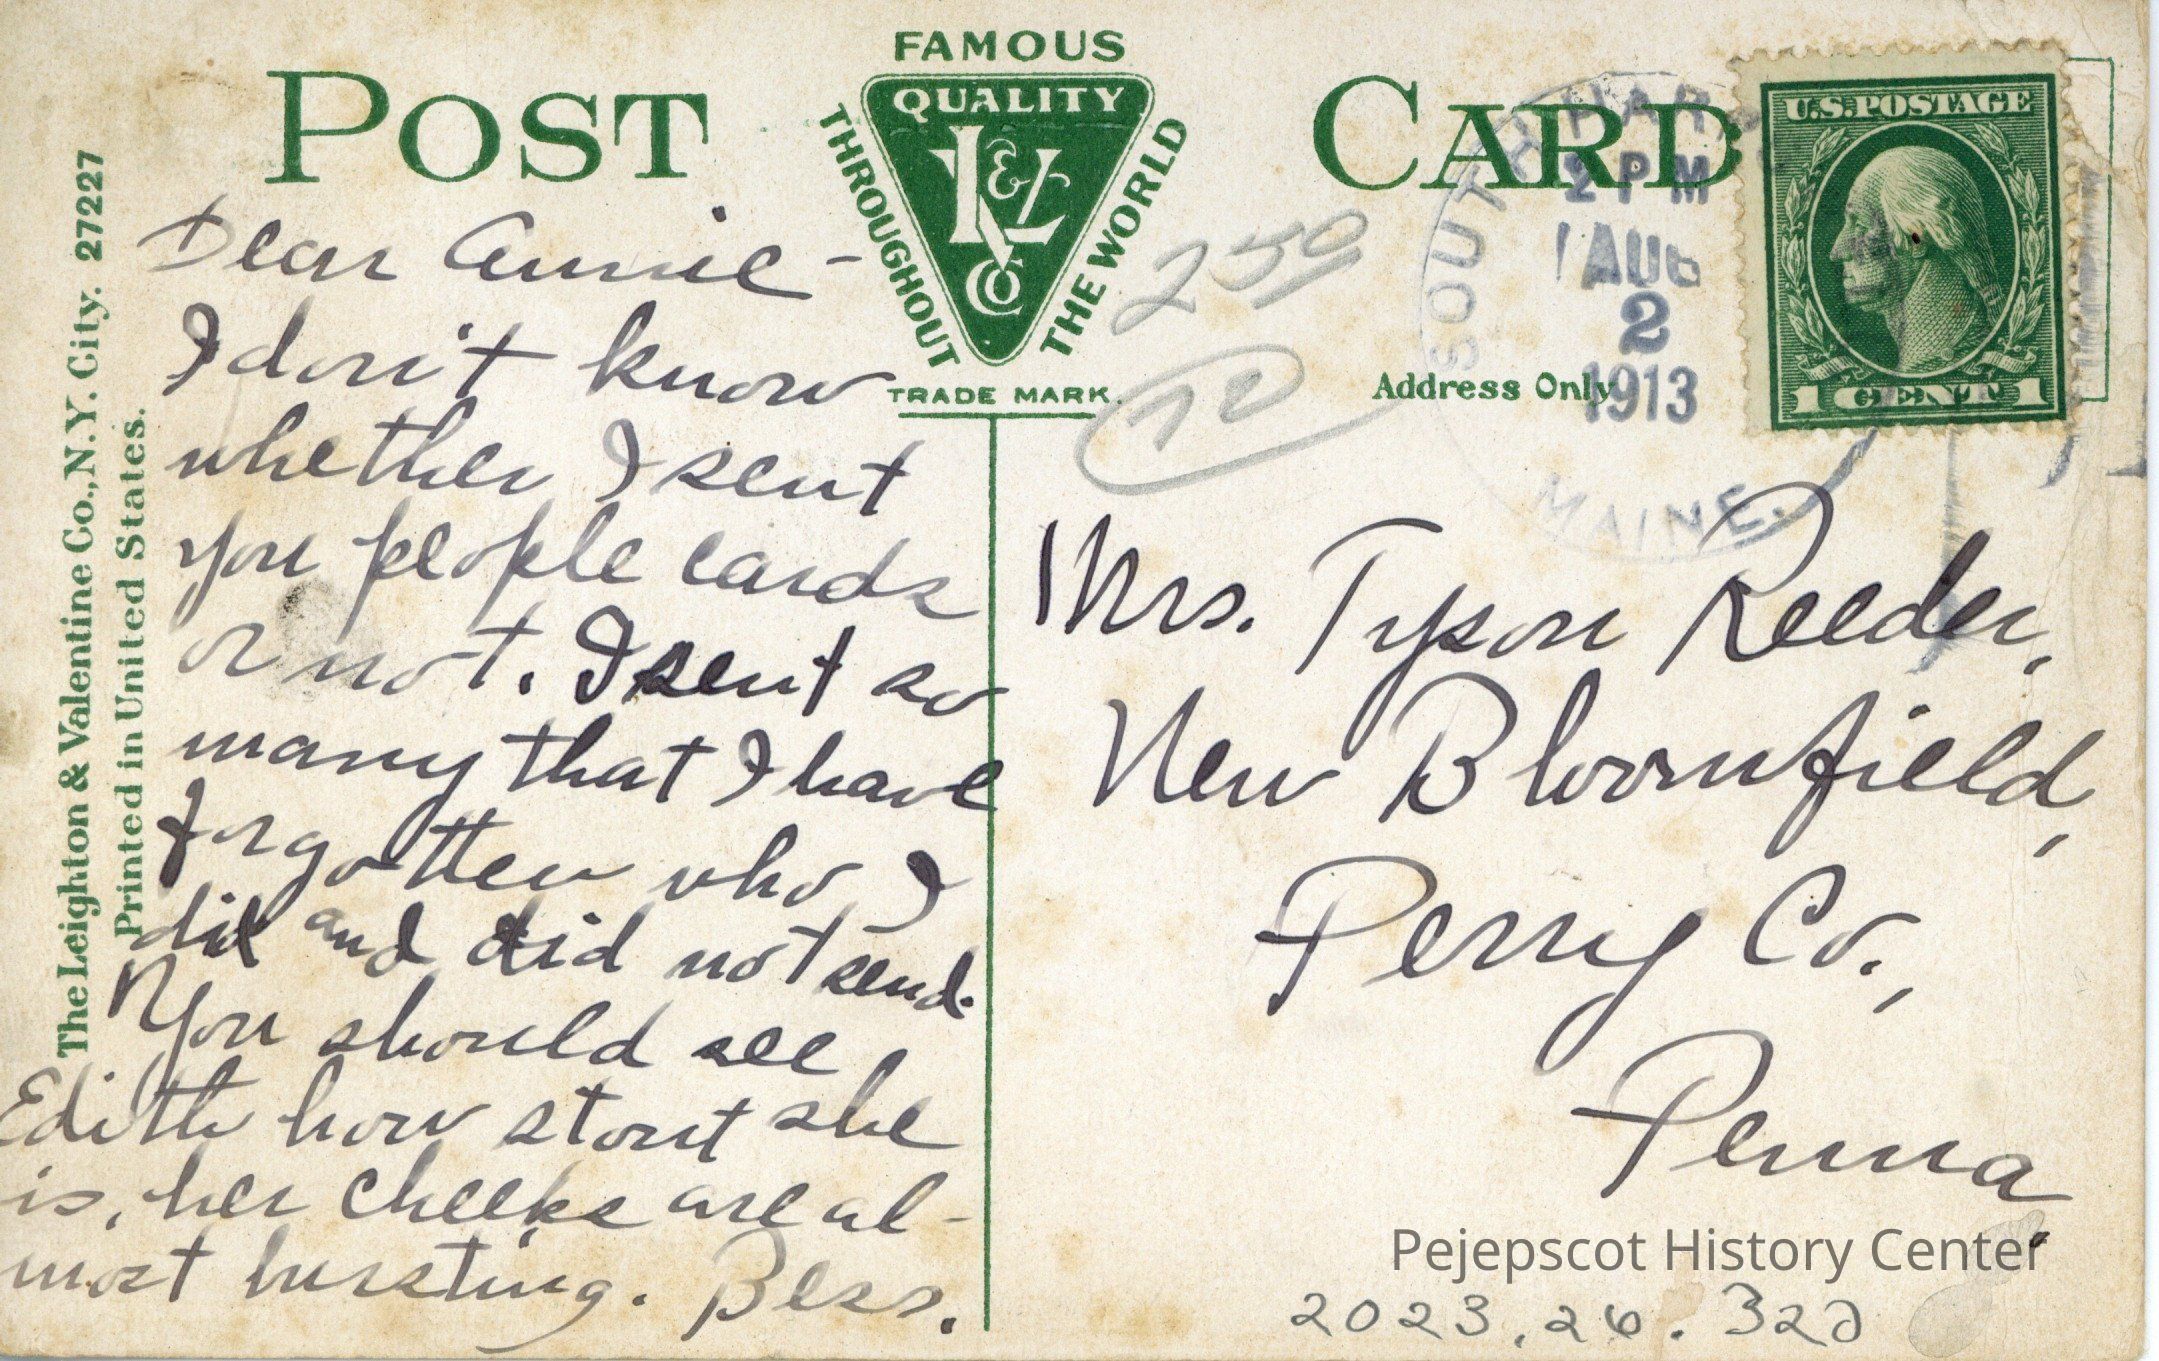 POST CARD
FAMOUS
QUALITY
THROUGHOUT
THE WORLD
L & V
CO
TRADE MARK.
The Leighton & Valentine Co., N.Y. City. 27227
Printed in United States.
Dear Annie -
I don't know
whether I sent
you people cards
or not. I sent so
many that I have
forgotten who I
did and did not send.
You should see
Edith how stout she
is, her cheeks are al-
most bursting. Bess.
250
Address Only
U.S. POSTAGE
1 CENT 1
SOUTH HARPS
2 PM
AUG
2
1913
MAINE.
Mrs. Tyson Reeder,
New Bloomfield,
Perry Co.,
Penna.
Pejepscot History Center
2023.26.32